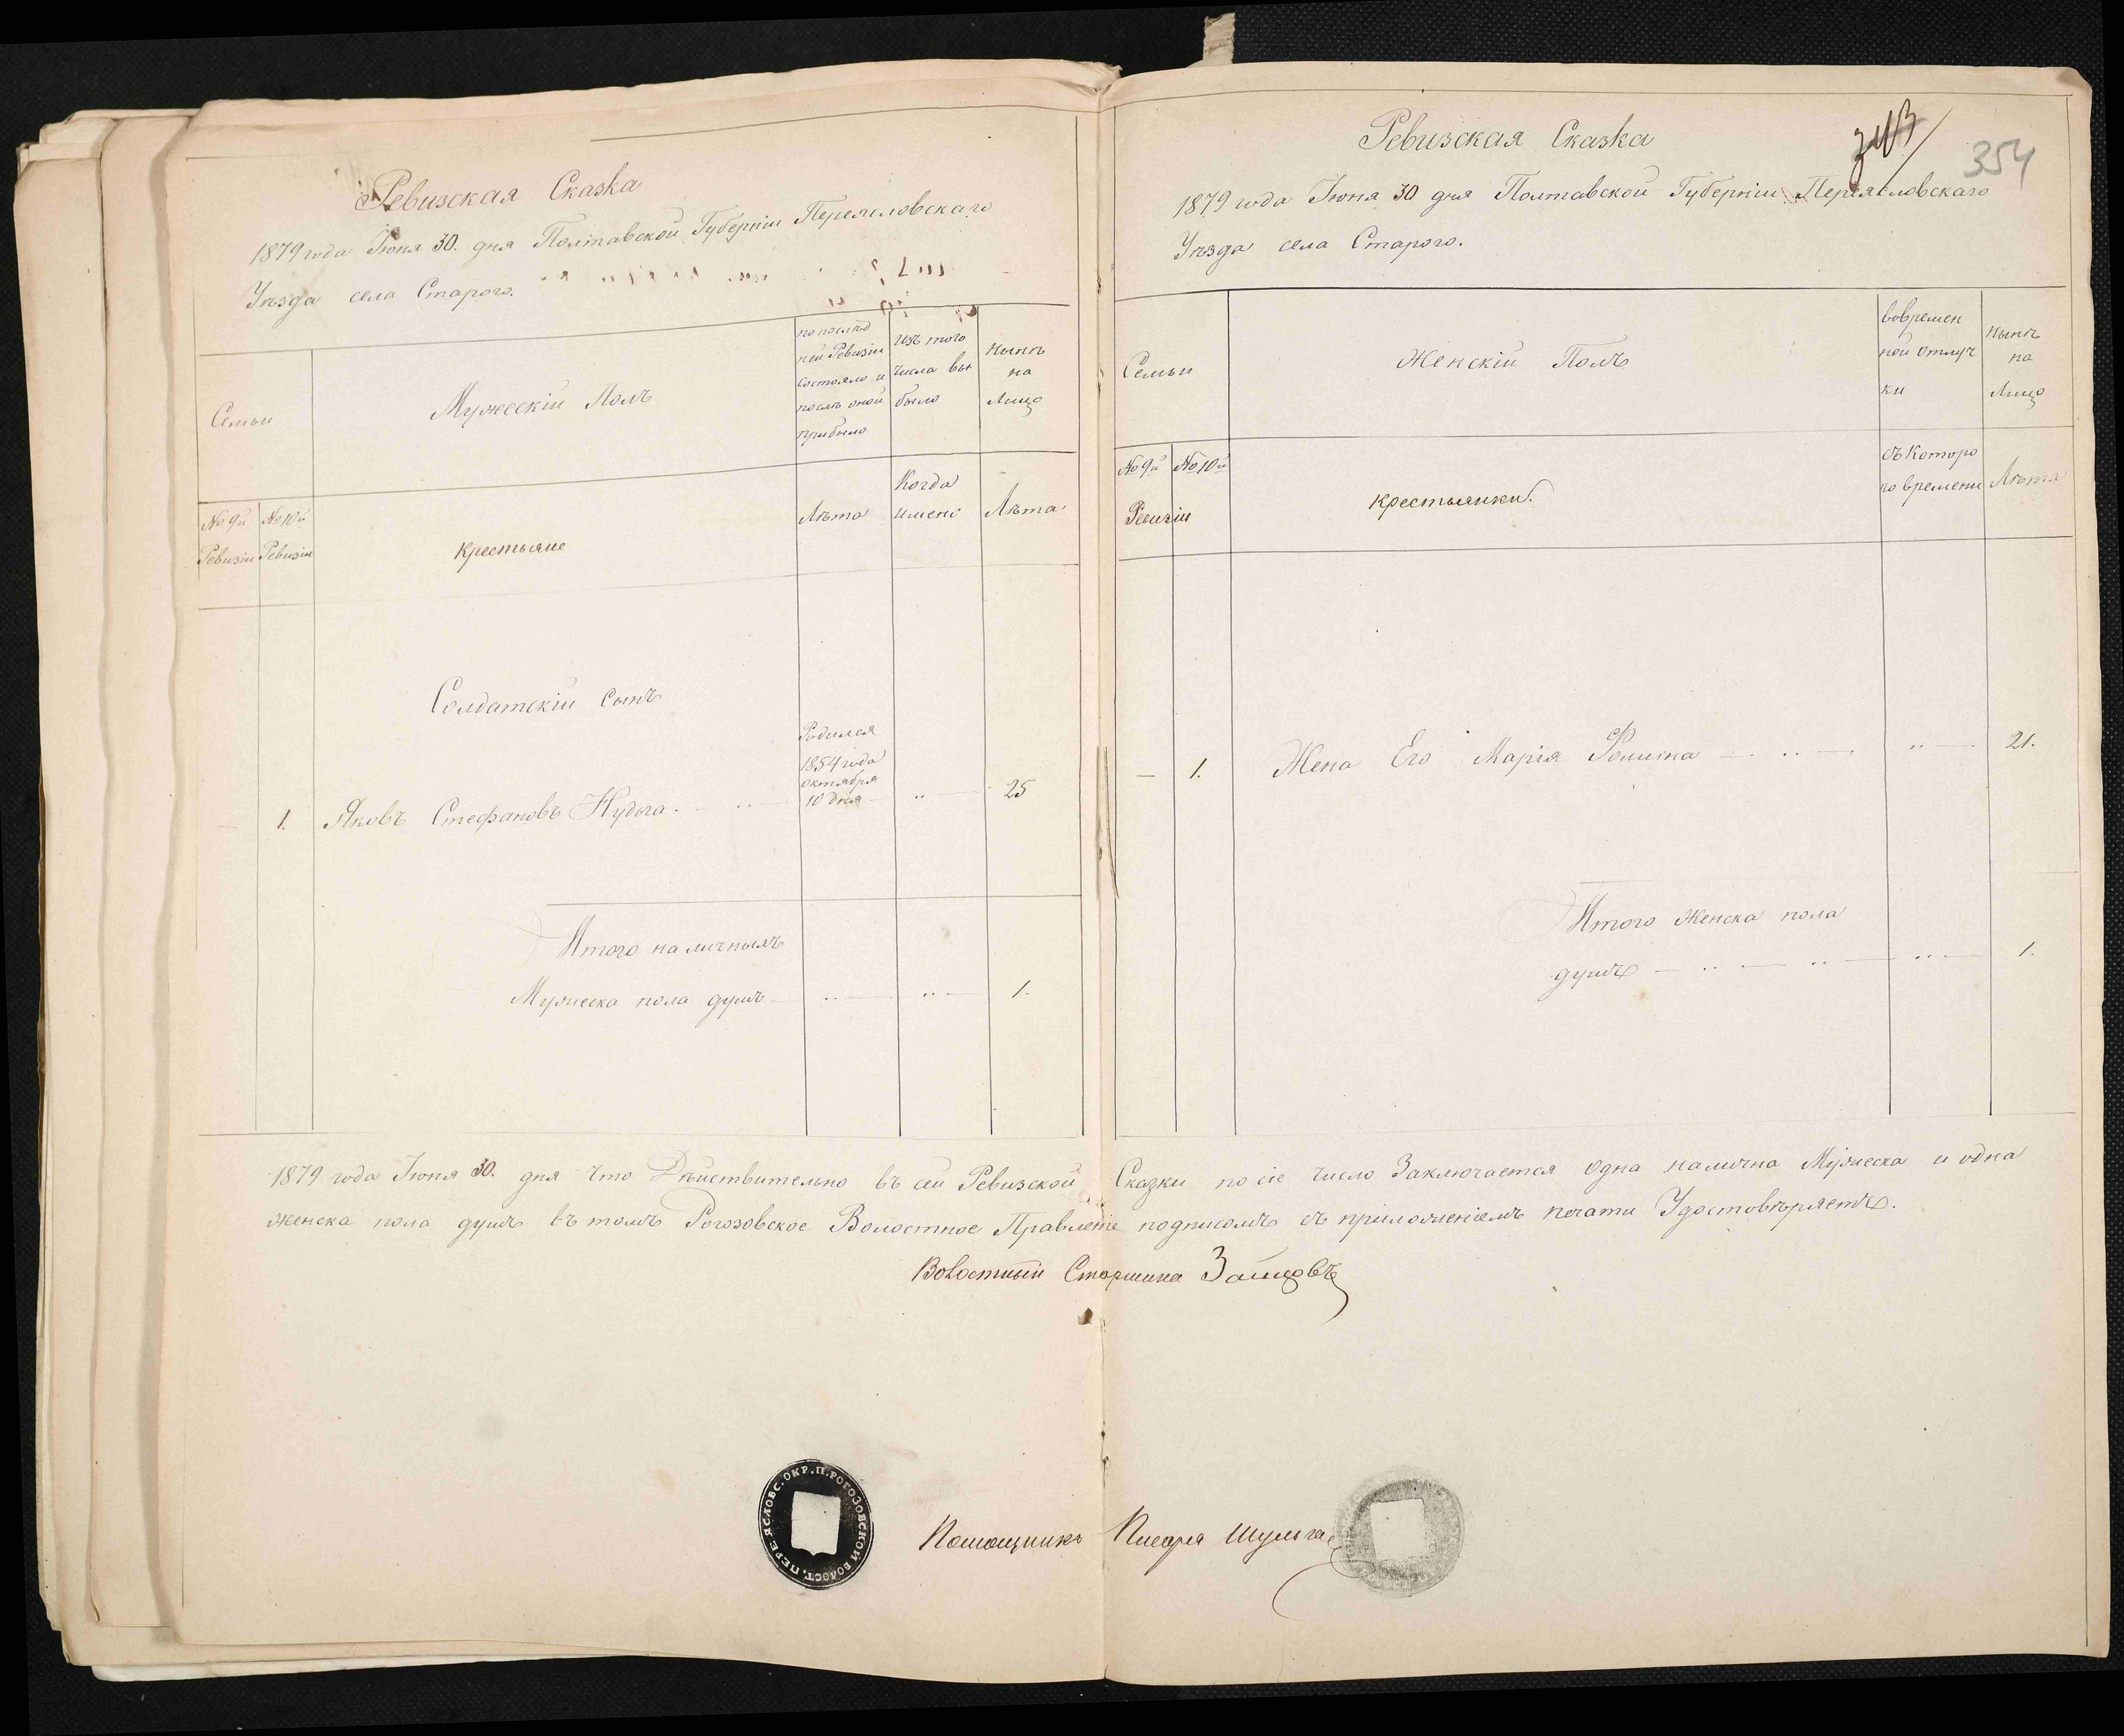 Ревизская Сказка
1879 года Июня 30. дня Полтавской Губерніи Переясловскаго
Уѣзда села Стараго.
Семьи
Мужескій Полъ
по послѣд
ней Ревизіи
состояло и
послѣ оной
прибыло
Изъ того
числа вы
было
Нынѣ
на
Лицо
№ 9й
Ревизіи
№ 10й
Ревизіи
Крестьяне
Лѣта
Когда
имено
Лѣта
Солдатскій сынъ
1. Яковъ Стефановъ Нудьга.
Родился
1854 года
октября
10 дня
25
Итого наличныхъ
Мужеска пола душъ 1.
Ревизская Сказка
343
354
1879 года Июня 30 дня Полтавской Губерніи Переясловскаго
Уѣзда села Стараго.
Семьи
Женскій Полъ
вовремен
ной отлуч
ки
Нынѣ
на
Лицо
№ 9й № 10й
Ревизіи
Крестьянки.
съ Которо
го времени
Лѣта
— 1. Жена Его Марія Фомина 21.
Итого Женска пола
душъ 1.
1879 года Июня 30. дня что Дѣйствительно въ сей Ревизской Сказки по сіе число Заключается Одна налична Мужеска и одна
женска пола душъ въ томъ Рогозовское Волостное Правленіе подписомъ съ приложеніемъ печати Удостовѣряетъ.
Волостный Старшина Зайцовъ
ПЕРЕЯСЛОВС. ОКР. П. РОГОЗОВСКОЙ ВОЛОСТ.
Помощникъ Писаря Шульга